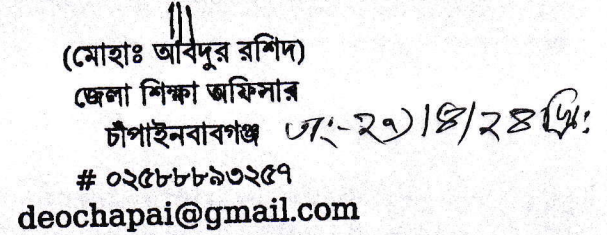 (মোহাঃ আবদুর রশিদ)
জেলা শিক্ষা অফিসার
চাঁপাইনবাবগঞ্জ তাং-২৭/৪/২৪ খ্রি:
# ০২৫৮৮৮৯৩২৫৭
deochapai@gmail.com